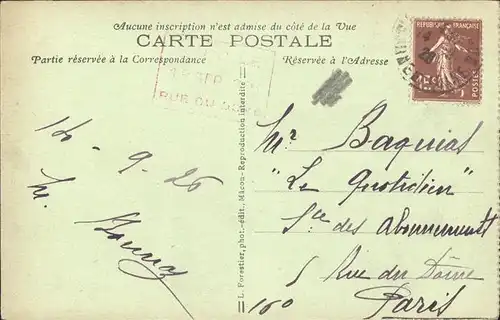 Aucune inscription n'est admise du côté de la Vue
CARTE POSTALE
Partie réservée à la Correspondance
Réservée à l'Adresse
REPUBLIQUE FRANÇAISE
POSTES
RUE DU
16-9-26
M.
L. Forestier, phot.-édit., Mâcon - Reproduction interdite
Mr Baquias
"Le Quotidien"
Sce des Abonnements
5 Rue du Dôme
Paris
160